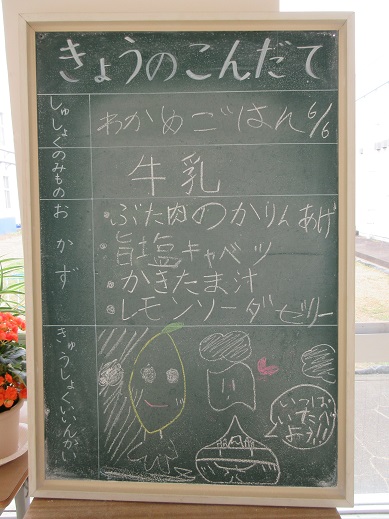 きょうのこんだて
しゅしょく
わかめごはん 6/6
のみもの
牛乳
おかず
・ぶた肉のかりんあげ
・旨塩キャベツ
・かきたま汁
・レモンソーダゼリー
きゅうしょくいいんかい
いっぱい
いただい
よう!!